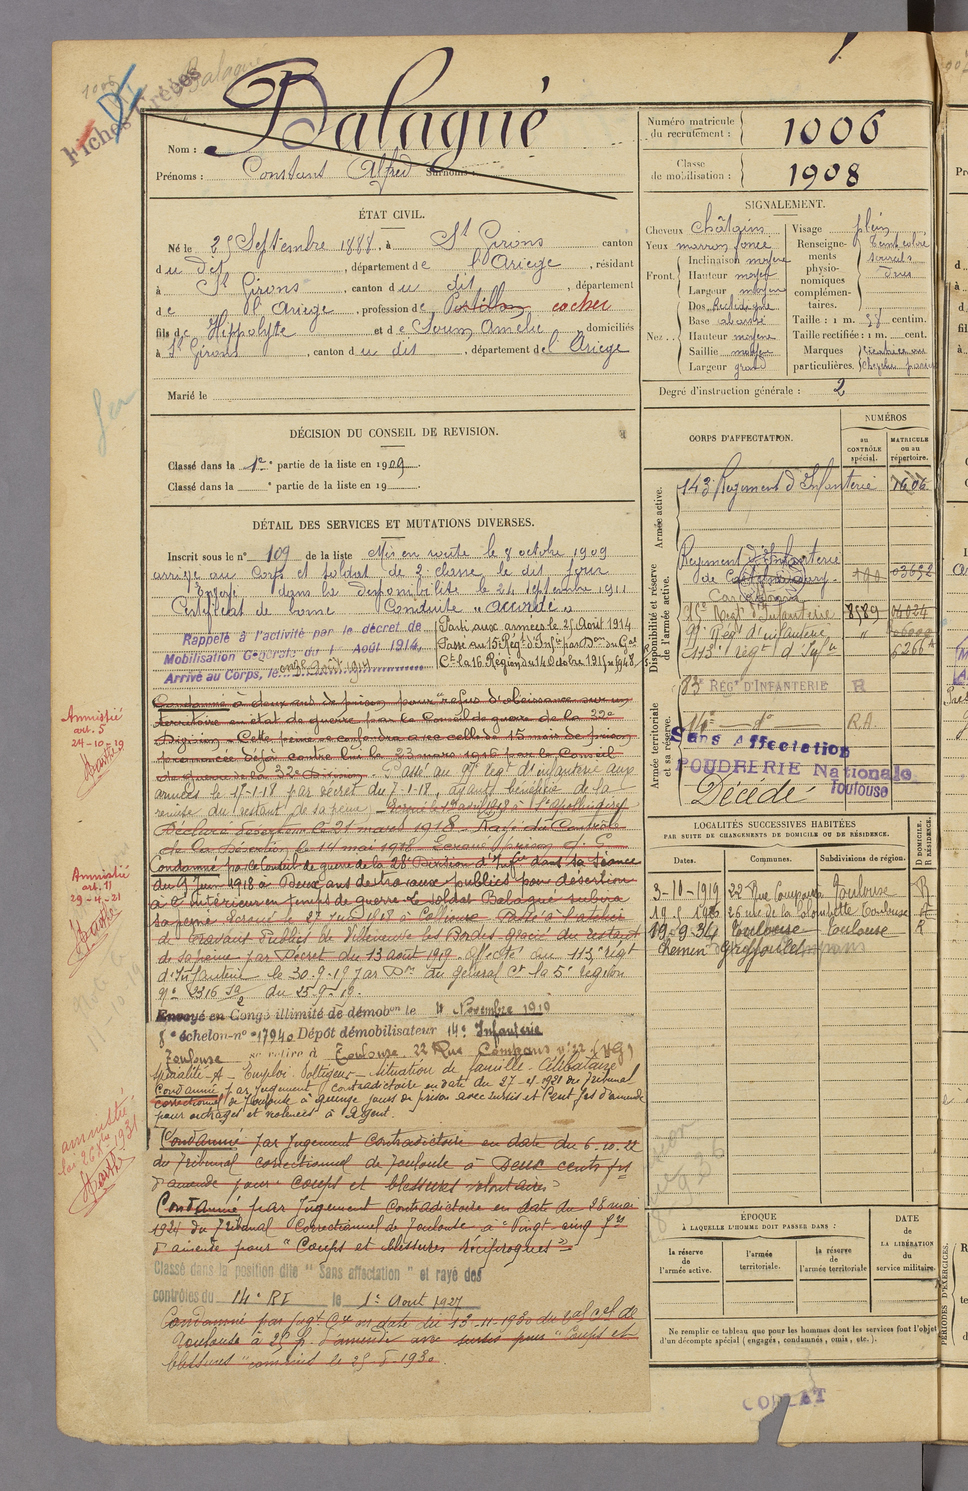 1006 Balagué
Fiches créées
Nom : Balagué
Prénoms : Constans Alfred Surnoms :
ÉTAT CIVIL.
Né le 25 Septembre 1888, à St Girons canton
du dit, département de l'Ariège, résidant
à St Girons, canton du dit, département
de l'Ariège, profession de Postillon cocher
fils de Hippolyte et de Soum Amélie domiciliés
à St Girons, canton du dit, département de l'Ariège
Marié le
DÉCISION DU CONSEIL DE REVISION.
Classé dans la 1re partie de la liste en 1909.
Classé dans la e partie de la liste en 19
DÉTAIL DES SERVICES ET MUTATIONS DIVERSES.
Inscrit sous le n° 109 de la liste Mis en route le 8 octobre 1909
arrivé au Corps et soldat de 2e classe le dit jour
Envoyé dans la disponibilité le 24 septembre 1911
Certificat de bonne Conduite "accordé"
Rappelé à l'activité par le décret de
Mobilisation Générale du 1er Août 1914,
Arrivé au Corps, le onze Août 1914
Parti aux armées le 25 Août 1914
Passé au 15 Régt d'Infie par Don du Gal
Ct la 16 Région du 14 Octobre 1915 n° 5948
Condamné à deux ans de prison pour "refus d'obéissance sur un
territoire en état de guerre par le Conseil de guerre de la 32e
Division - Cette peine se confondra avec celle de 15 mois de prison
prononcée déjà contre lui le 23 mars 1916 par le Conseil
de guerre de la 32e Division - Passé au 9e régt d'infanterie aux
armées le 17-1-18 par décret du 7-1-18, ayant bénéficié de la
remise du restant de sa peine)
Déclaré déserteur le 21 mars 1918. Rayé des Contrôles
de la Désertion le 14 mai 1918
Condamné par le Conseil de guerre de la 28e Division d'Infie dans sa Séance
du 9 Juin 1918 à Deux ans de travaux publics pour désertion
à l'intérieur en temps de guerre Le soldat Balagué subira
sa peine Ecroué le 27 Juin 1918 à Collioure Passé à l'atelier
de Travaux Publics de Villeneuve les Bordes gracié du restant
de sa peine par Décret du 13 août 1919 - affecté au 113e régt
d'Infanterie le 30.9.19 par Don du général Ct la 5e région
n° 2316 du 25-9-19.
Envoyé en Congé illimité de démobon le 4 Novembre 1919
8e échelon - no 17940 Dépôt démobilisateur 14e Infanterie
Toulouse se retire à Toulouse. 22 Rue Compans n° 22 (HG)
Spécialité A - Emploi Voltigeur - situation de famille Célibataire
Condamné par Jugement contradictoire en date du 27-4-1921 du Tribunal
correctionnel de Toulouse à quinze jours de prison avec sursis et Cent frs d'amende
pour outrages et violences à agent.
Condamné par Jugement Contradictoire en date du 6-10-22
du Tribunal correctionnel de Toulouse à Deux cents frs
d'amende pour "coups et blessures volontaires"
Condamné par Jugement Contradictoire en date du 28 mai
1924 du Tribunal Correctionnel de Toulouse à "Vingt-cinq frs
d'amende pour "Coups et blessures réciproques"
Classé dans la position dite "Sans affectation" et rayé des
contrôles du 14e RI le 1er Août 1927
Condamné par Jugt Cre en date du 13-11-1930 du
Toulouse à 25 f. d'amende avec sursis pour "Coups et
blessures" commis le 25-5-1930.
Amnistié
art. 5
24-10-19
Barthe
Amnistié
art. 11
29-4-21
Barthe
amnistié
loi 26 Xbre 1931
Barthe
Numéro matricule du recrutement : 1006
Classe de mobilisation : 1908
SIGNALEMENT.
Cheveux châtains
Yeux marron foncé
Front. Inclinaison moyenne
Hauteur moyen
Largeur moyenne
Nez.. Dos Rectiligne
Base abaissé
Hauteur moyenne
Saillie moyen
Largeur grand
Visage plein
Renseignements physionomiques complémentaires. Teint coloré
sourcils
Taille : 1 m. 58 centim.
Taille rectifiée : 1 m. cent.
Marques particulières.
Degré d'instruction générale : 2
CORPS D'AFFECTATION.
NUMÉROS
au CONTRÔLE spécial.
MATRICULE ou au répertoire.
Armée active.
143e Régiment d'Infanterie 1606
Disponibilité et réserve
Régiment d'Infanterie
de Castelnaudary. 03692
Carcassonne
15e Régt d'Infanterie 8589
9e Rég d'infanterie "
113e régt d'Infie 5266
Armée territoriale et sa réserve.
83e RÉGt D'INFANTERIE R
14e do R.A.
Sans Affectation
POUDRERIE Nationale
Toulouse
Décédé
LOCALITÉS SUCCESSIVES HABITÉES
PAR SUITE DE CHANGEMENTS DE DOMICILE OU DE RÉSIDENCE.
Dates. Communes. Subdivisions de région. D DOMICILE. R RÉSIDENCE.
3-10-1919 22 Rue Compans Toulouse R
19-5-1920 26 rue de la Colombette Toulouse
19-9-34 Toulouse Toulouse R
chemin
ÉPOQUE
À LAQUELLE L'HOMME DOIT PASSER DANS :
la réserve de l'armée active.
l'armée territoriale.
la réserve de l'armée territoriale
DATE de LA LIBÉRATION du service militaire.
Ne remplir ce tableau que pour les hommes dont les services font l'objet
d'un décompte spécial (engagés, condamnés, omis, etc.).
PÉRIODES D'EXERCICES.